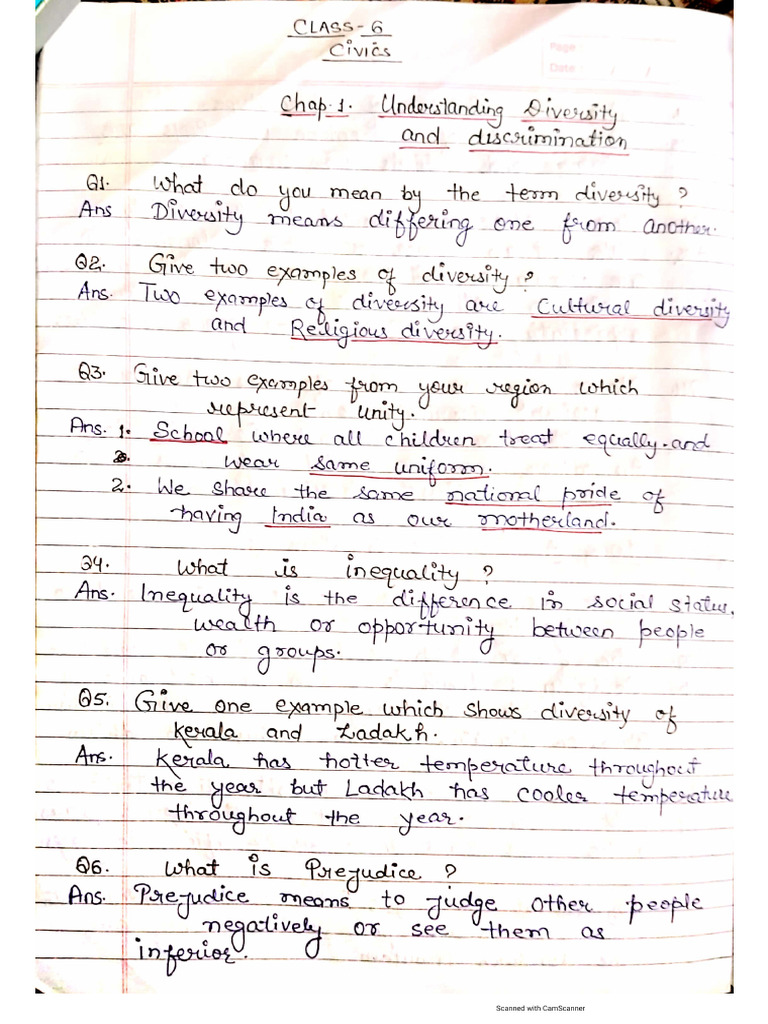 CLASS-6
Civics
Page
Date: / /
Chap.1. Understanding Diversity
and discrimination
Q1. What do you mean by the term diversity?
Ans Diversity means differing one from another.
Q2. Give two examples of diversity?
Ans. Two examples of diversity are Cultural diversity
and Religious diversity.
Q3. Give two examples from your region which
represent unity.
Ans. 1. School where all children treat equally and
wear same uniform.
2. We share the same national pride of
having India as our motherland.
Q4. What is inequality?
Ans. Inequality is the difference in social status,
wealth or opportunity between people
or groups.
Q5. Give one example which shows diversity of
Kerala and Ladakh.
Ans. Kerala has hotter temperature throughout
the year but Ladakh has cooler temperature
throughout the year.
Q6. What is Prejudice?
Ans. Prejudice means to judge other people
negatively or see them as
inferior.
Scanned with CamScanner